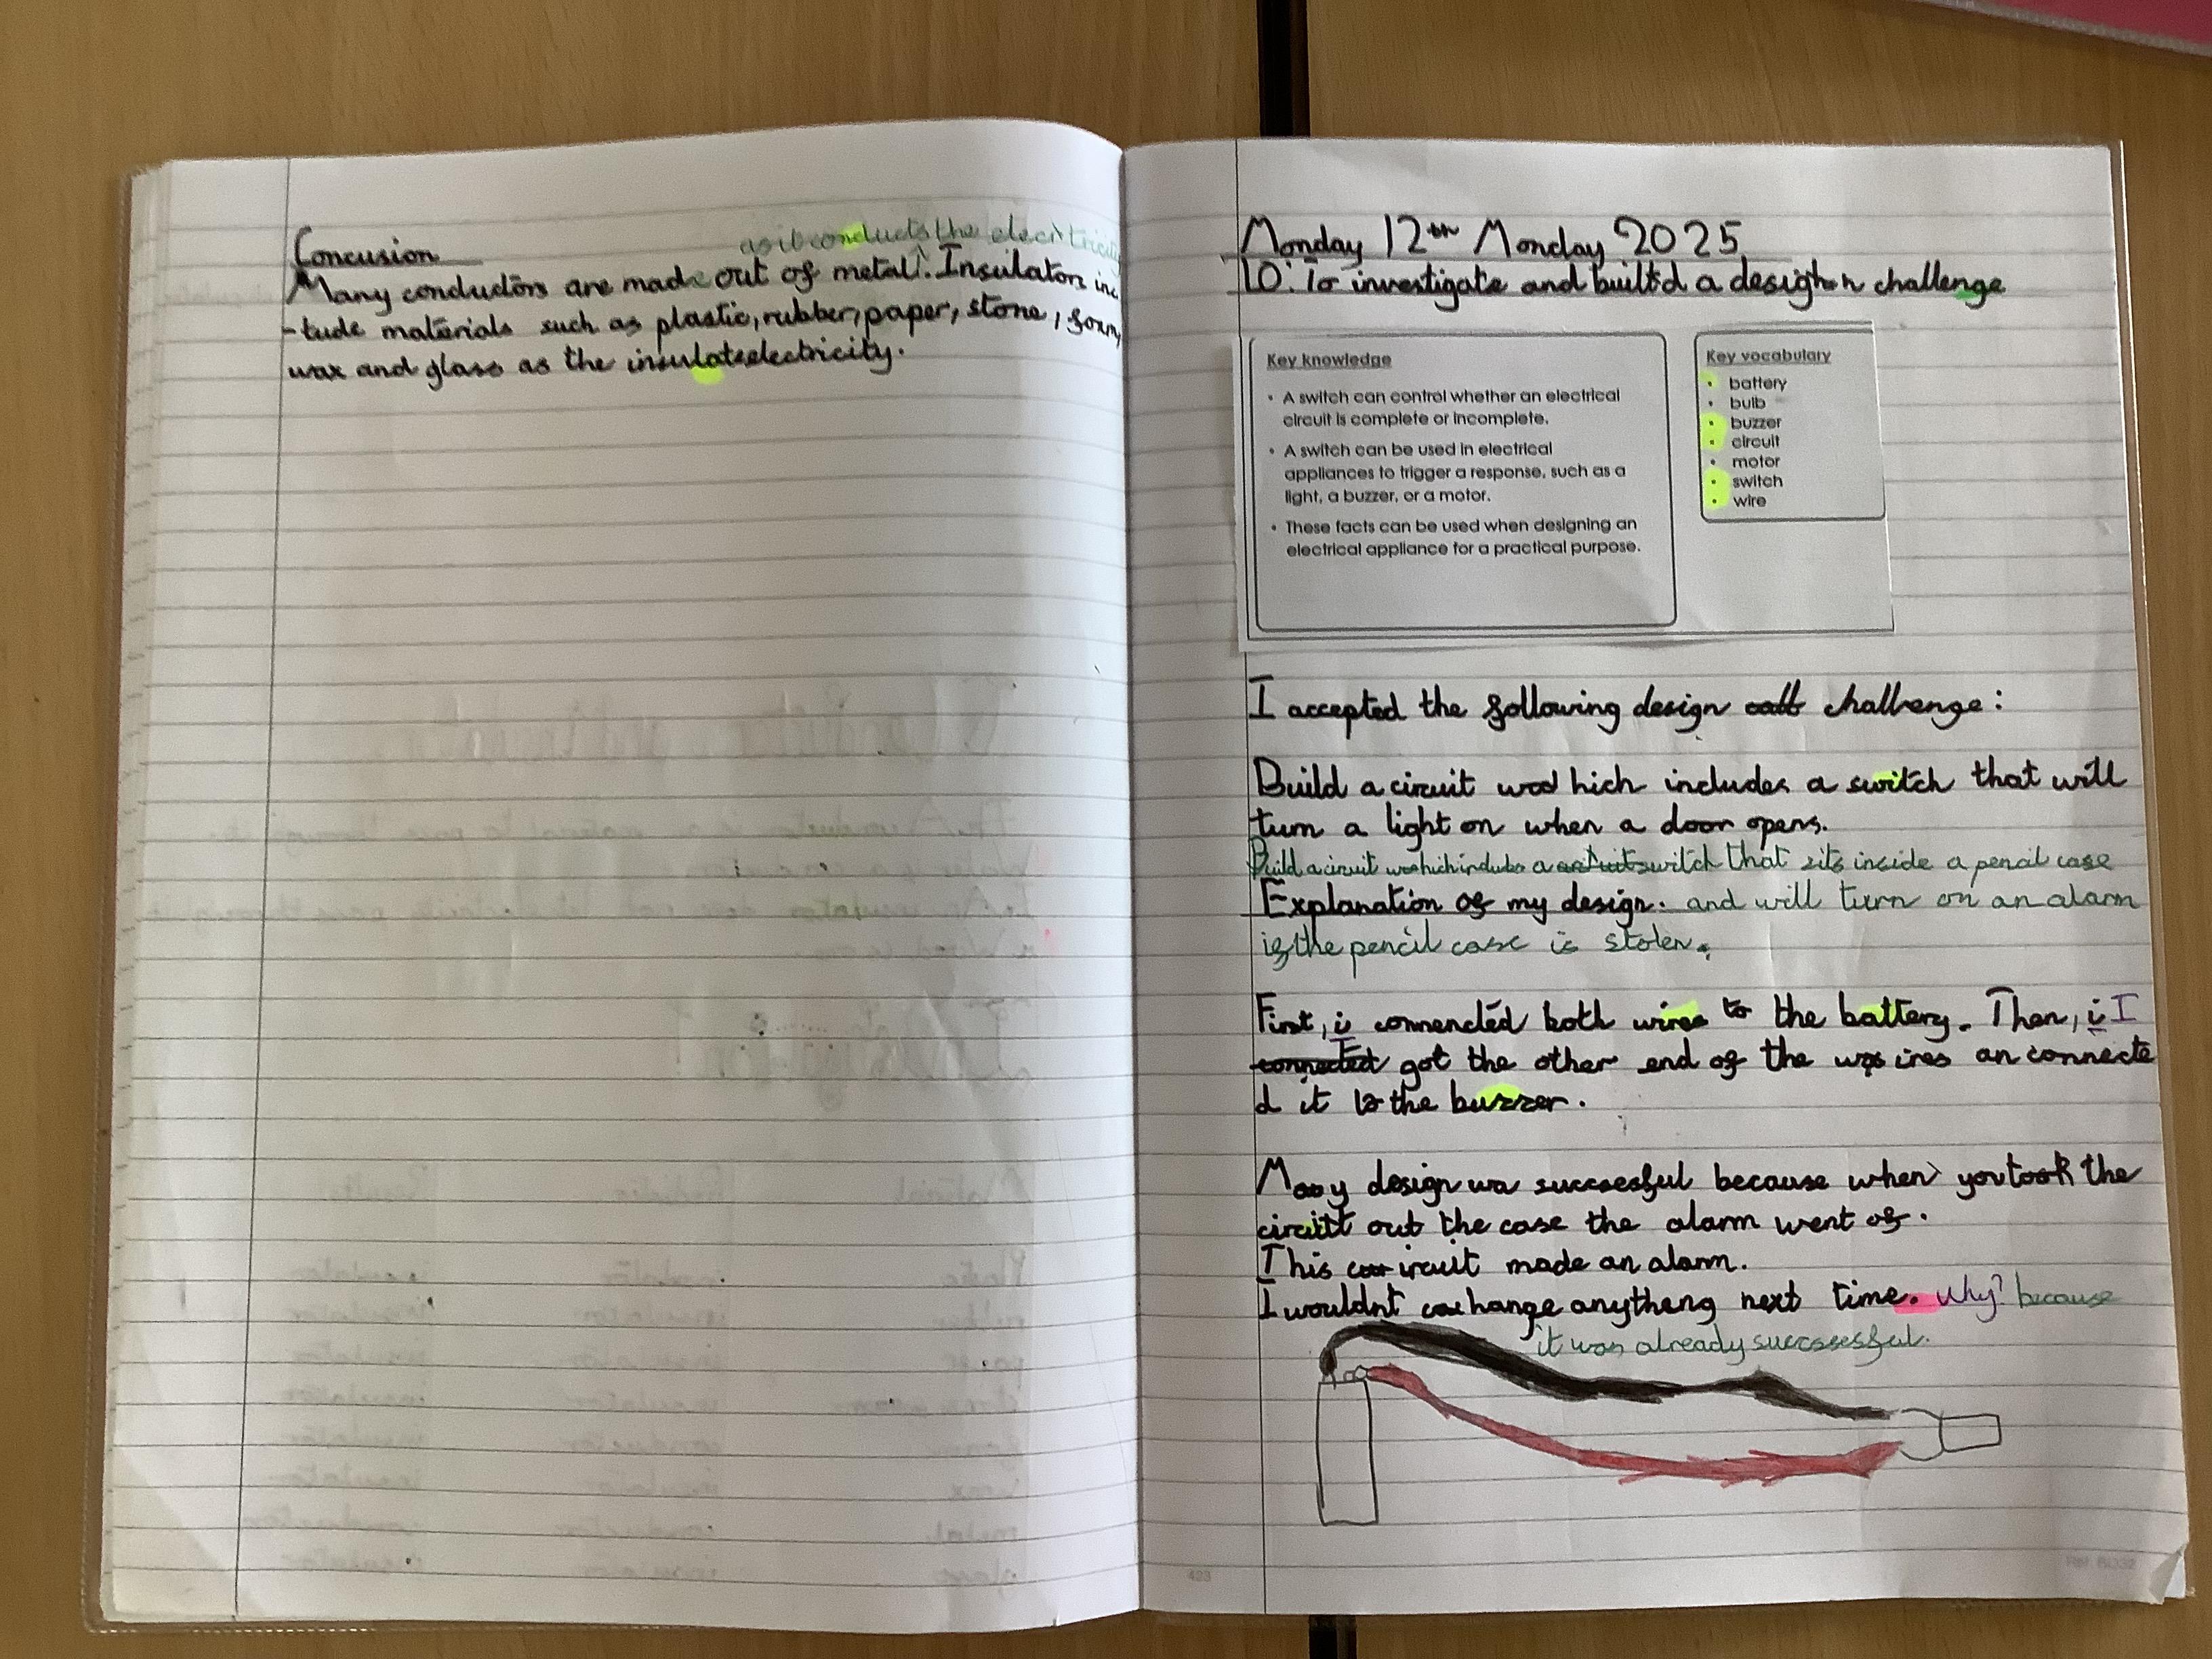 Concusion
as it conducts the electricity
Many conductors are made out of metal. Insulators inc
-lude materials such as plastic, rubber, paper, stone, foam,
wax and glass as the insulate electricity.
Monday 12th Monday 2025
LO: To investigate and build a design challenge
Key knowledge
• A switch can control whether an electrical
circuit is complete or incomplete.
• A switch can be used in electrical
appliances to trigger a response, such as a
light, a buzzer, or a motor.
• These facts can be used when designing an
electrical appliance for a practical purpose.
Key vocabulary
• battery
• bulb
• buzzer
• circuit
• motor
• switch
• wire
I accepted the following design challenge:
Build a circuit which includes a switch that will
turn a light on when a door opens.
Build a circuit which includes a switch that sits inside a pencil case
Explanation of my design. and will turn on an alarm
if the pencil case is stolen.
First, i connencted both wires to the battery. Then, i I
connected got the other end of the wires an connecte
d it to the buzzer.
My design wa succsesful because when you took the
circuit out the case the alarm went of.
This circuit made an alarm.
I wouldnt change anytheng next time. Why? because
it was already successful.
423
Ref. BD32